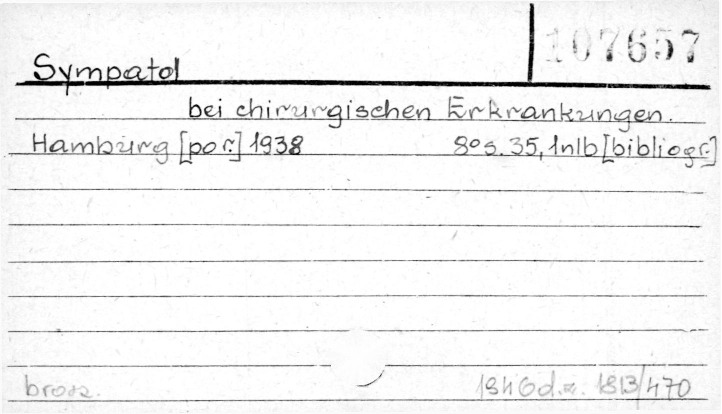 107657
Sympatol
bei chirurgischen Erkrankungen.
Hamburg [por.] 1938 8° s. 35, 1nlb [bibliogr.]
brosz. 1846 d.